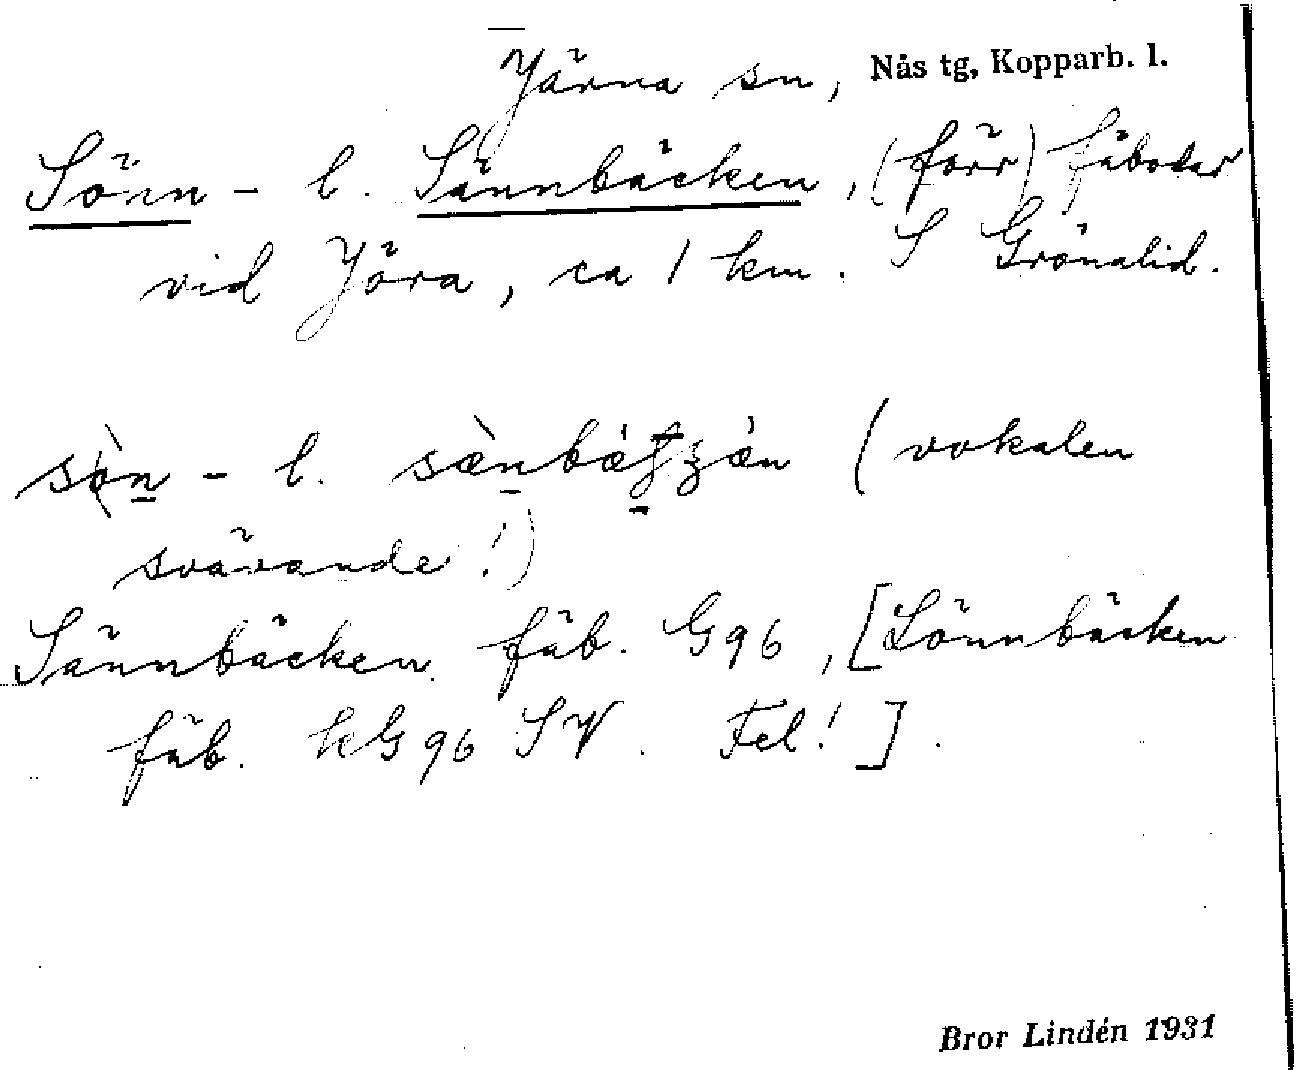 Järna sn, Nås tg, Kopparb. l.
Sönn- l. Sännbäcken, (förr) fäbodar
vid Jöra, ca 1 km. S Grönalid.
sòn - l. sæ̀nbæ̀ (vokalen
svävande!)
Sännbäcken fäb. G96, [Lönnbäcken
fäb. kG96 SV. Fel!].
Bror Lindén 1931